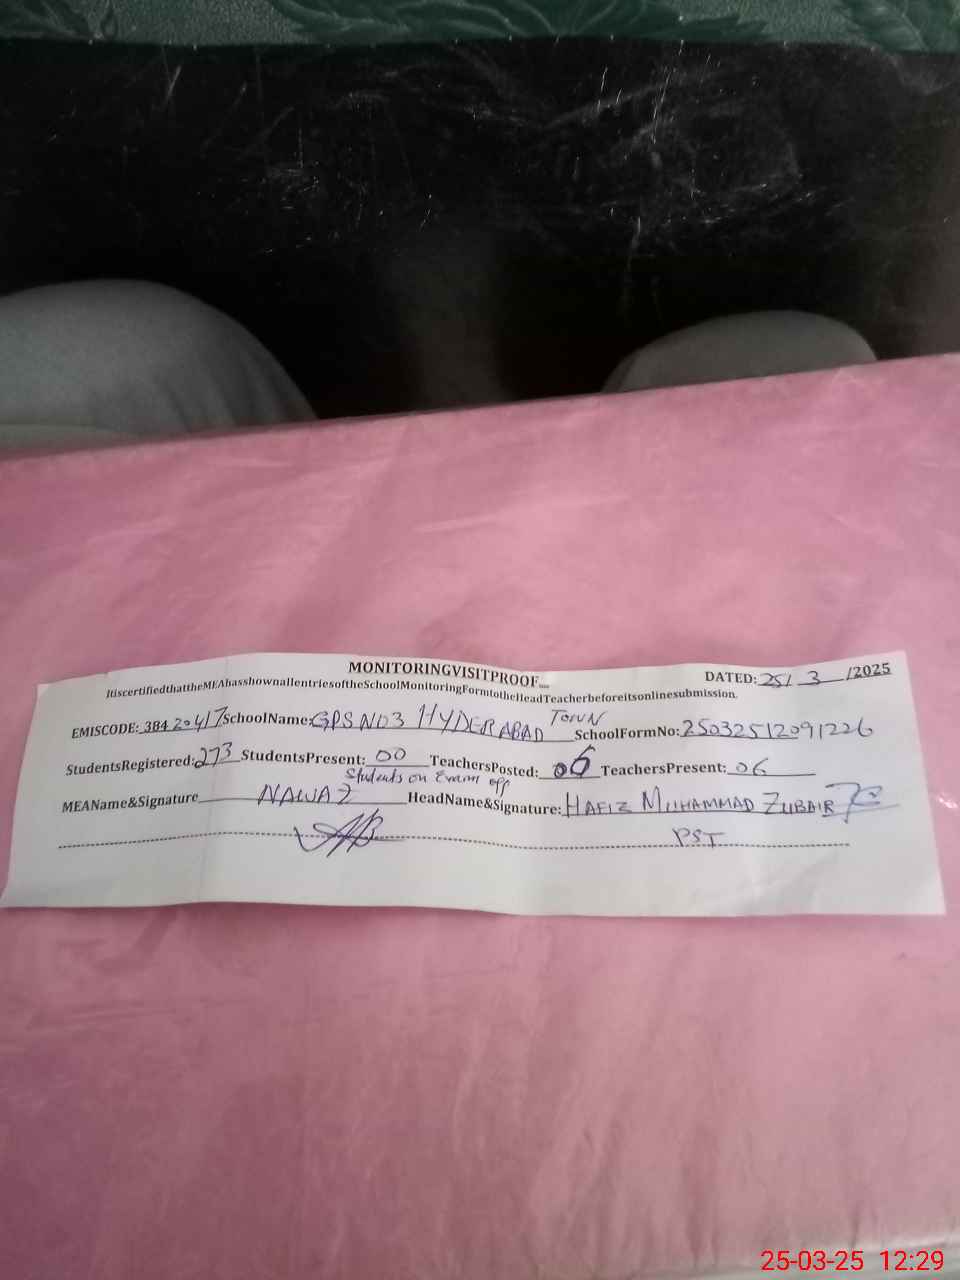 MONITORINGVISITPROOF....
DATED: 25/ 3 /2025
ItiscertifiedthattheMEAhasshownallentriesoftheSchoolMonitoringFormtotheHeadTeacherbeforeitsonlinesubmission.
EMISCODE: 384 20417 SchoolName: GPS NO3 HYDERABAD TOWN SchoolFormNo: 25032512091226
StudentsRegistered: 273 StudentsPresent: 00 TeachersPosted: 06 TeachersPresent: 06
Students on Exam off
MEAName&Signature NAWAZ HeadName&Signature: HAFIZ MUHAMMAD ZUBAIR
PST
25-03-25 12:29